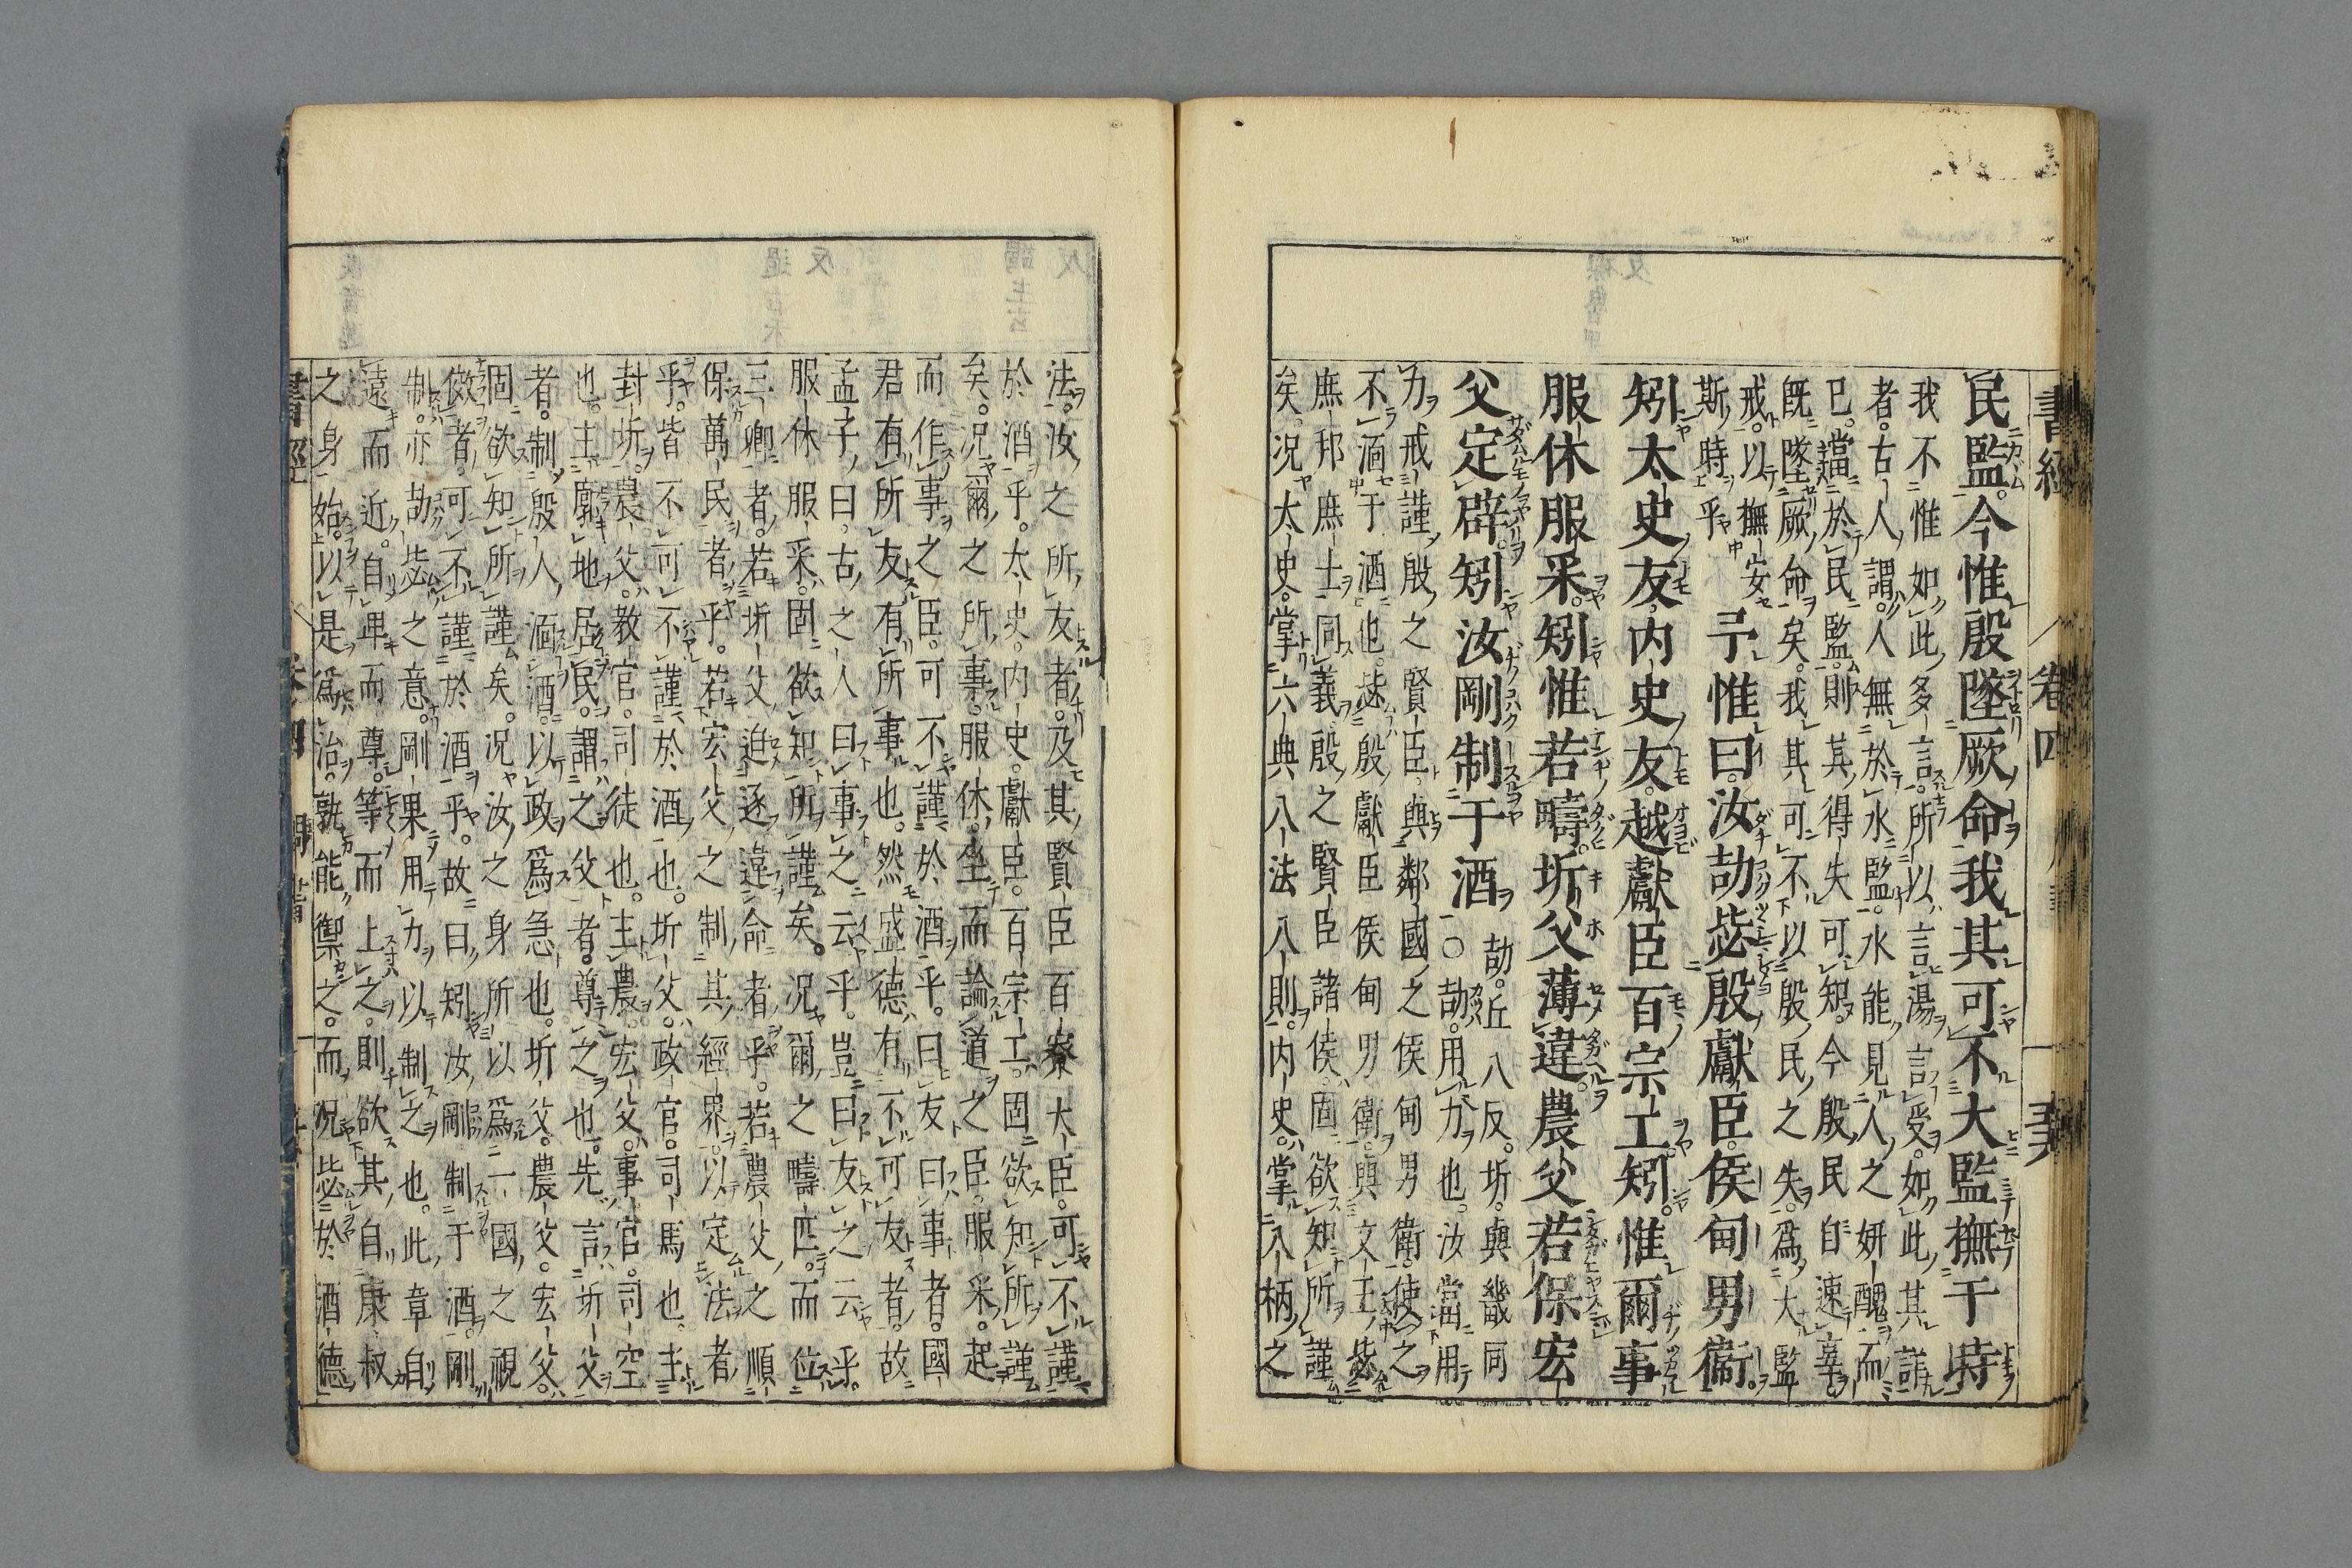 書經 卷四
民監今惟殷墜厥命我其可不大監撫于時
我不惟如此多言所以言湯言受如此其詳
者古人謂人無於水監水能見人之妍醜而
已當於民監則其得失可知今殷民自速辜
既墜厥命矣我其可不以殷民之失爲大監
戒以撫安
斯時乎
予惟曰汝劼毖殷獻臣侯甸男衞
矧太史友内史友越獻臣百宗工矧惟爾事
服休服采矧惟若疇圻父薄違農父若保宏
父定辟矧汝剛制于酒
劼丘八反圻與畿同
○劼用力也汝當用
力戒謹殷之賢臣與鄰國之侯甸男衛使之
不湎于酒也毖殷獻臣侯甸男衛與文王毖
庶邦庶士同義殷之賢臣諸侯固欲知所謹
矣況太史掌六典八法八則内史掌八柄之
法汝之所友者及其賢臣百寮大臣可不謹
於酒乎太史内史獻臣百宗工固欲知所謹
矣況爾之所事服休坐而論道之臣服采起
而作事之臣可不謹於酒乎曰友曰事者國
君有所友有所事也然盛德有不可友者故
孟子曰古之人曰事之云乎豈曰友之云乎
服休服采固欲知所謹矣況爾之疇匹而位
三卿者若圻父迫逐違命者乎若農父之順
保萬民者乎若宏父之制其經界以定法者
乎皆不可不謹於酒也圻父政官司馬也主
封圻農父教官司徒也主農宏父事官司空
也主廓地居民謂之父者尊之也先言圻父
者制殷人湎酒以政爲急也圻父農父宏父
固欲知所謹矣況汝之身所以爲一國之視
傚者可不謹於酒乎故曰矧汝剛制于酒剛
制亦劼毖之意剛果用力以制之也此章自
遠而近自卑而尊等而上之則欲其自康叔
之身始以是爲治孰能禦之而況毖於酒德
書經